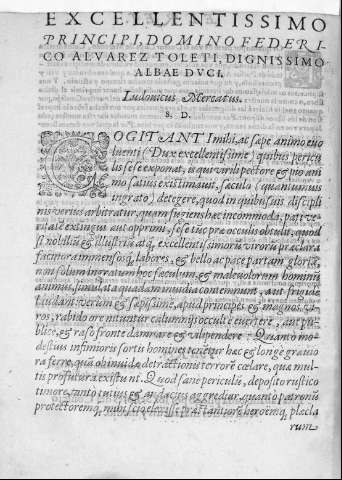 EXCELLENTISSIMO
PRINCIPI, DOMINO FEDERI-
CO ALVAREZ TOLETI, DIGNISSIMO
ALBAE DVCI.
Ludouicus Mercatus.
S. D.
COGITANTI mihi, ac sæpe animo euo
luenti (Dux excellentissime) quibus pericu
lis sese exponat, is qui virili pectore & pio ani
mo satius existimauit, sæculo (quantumuis
ingrato) detegere, quod in quibusuis discipli
nis verius arbitratur, quam fugiens hæc incommoda, pati ve
ritatē extingui aut opprimi, sese tuc præ oculis obtulit, quod
si nobiliū & illustriū atq, excellentissimorū virorū præclara
facinora immensosq, labores, & bello ac pace partam gloriā,
non solum ingratum hoc sæculum, & maleuolorum hominū
animus, simulata quadam inuidia contemnunt, aut fraude
liuidant: verum & sæpissime, apud principes & magnos vi
ros, rabido ore nituntur calumnijs occultè euertere, aut pu-
blice, & raso fronte damnare & vilipendere: Quanto mo-
destius infimioris sortis homines tenētur hæc & longe grauio
ra ferre, quā ob inuidæ detractionis terrorē cœlare, quæ mul-
tis profutura existunt. Quod sane periculū, deposito rustico
timore, tanto tutius & audacius aggrediar, quanto patronū
protectoremq, nunciscelerius præstantiorē heroemq, præcla
rum